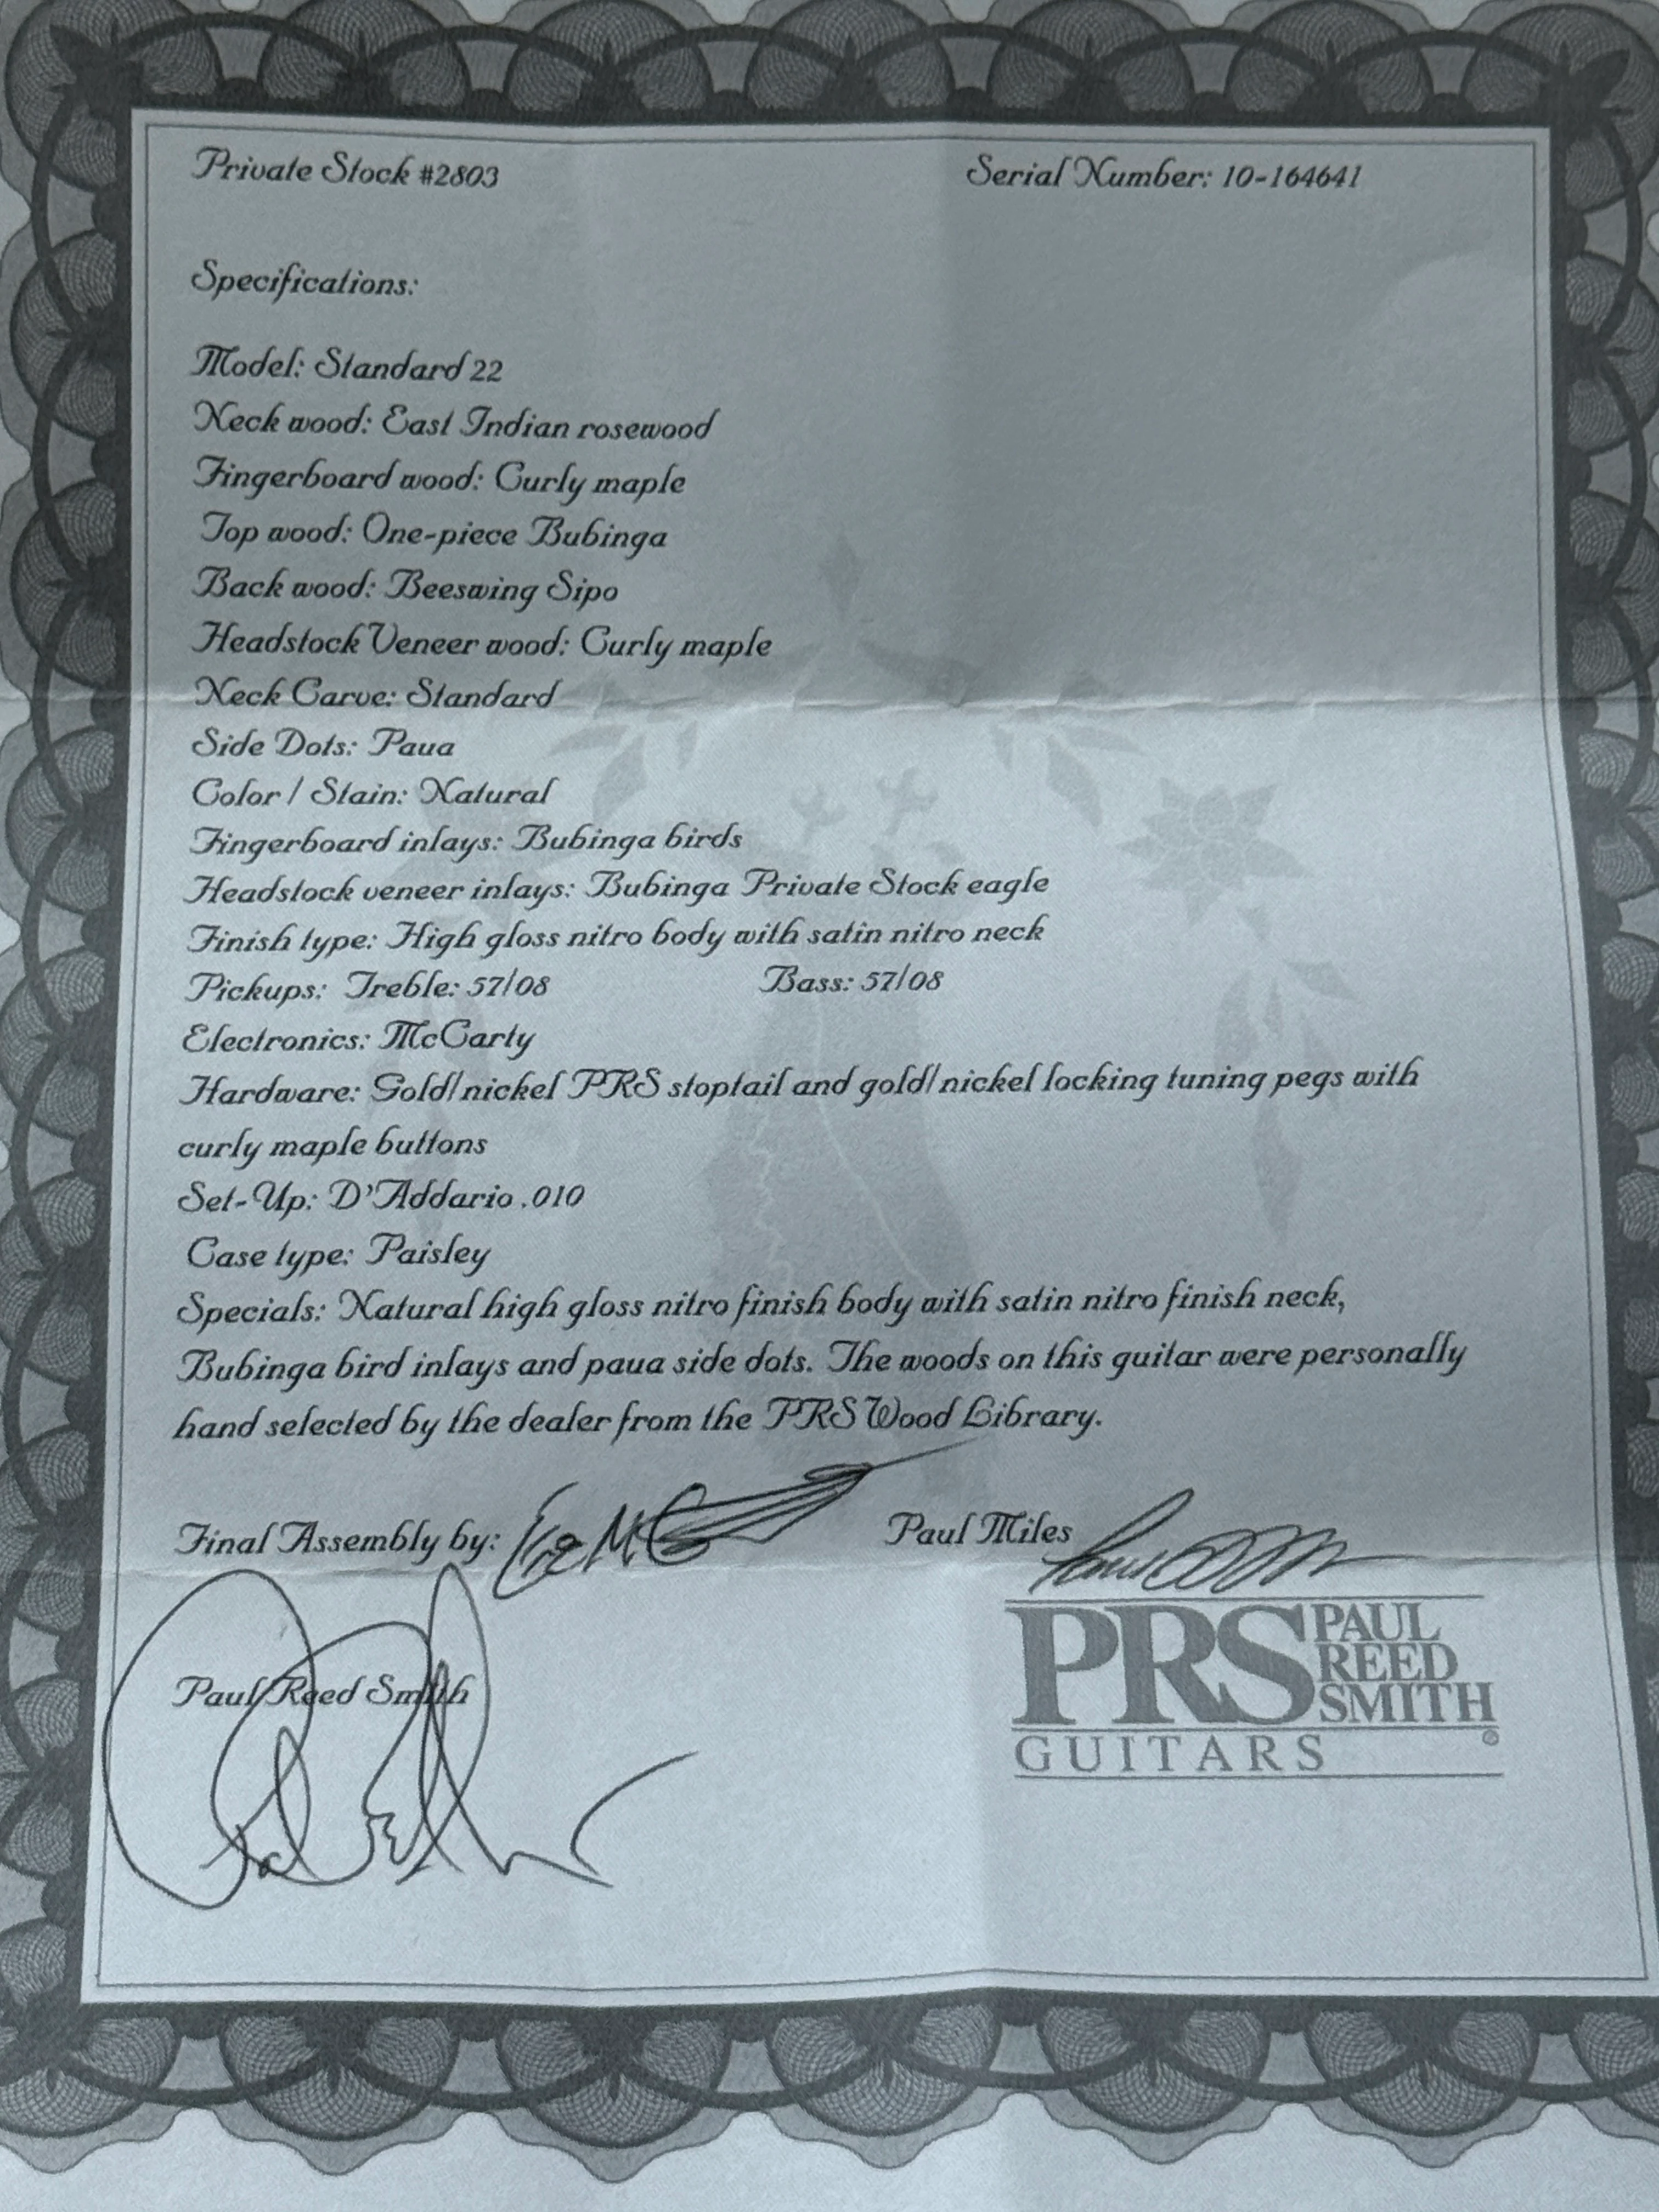 Private Stock #2803 Serial Number: 10-164641
Specifications:
Model: Standard 22
Neck wood: East Indian rosewood
Fingerboard wood: Curly maple
Top wood: One-piece Bubinga
Back wood: Beeswing Sipo
Headstock Veneer wood: Curly maple
Neck Carve: Standard
Side Dots: Paua
Color / Stain: Natural
Fingerboard inlays: Bubinga birds
Headstock veneer inlays: Bubinga Private Stock eagle
Finish type: High gloss nitro body with satin nitro neck
Pickups: Treble: 57/08 Bass: 57/08
Electronics: McCarty
Hardware: Gold/nickel PRS stoptail and gold/nickel locking tuning pegs with
curly maple buttons
Set-Up: D'Addario .010
Case type: Paisley
Specials: Natural high gloss nitro finish body with satin nitro finish neck,
Bubinga bird inlays and paua side dots. The woods on this guitar were personally
hand selected by the dealer from the PRS Wood Library.
Final Assembly by: Paul Miles
Paul Reed Smith
PRS PAUL
REED
SMITH
GUITARS ®